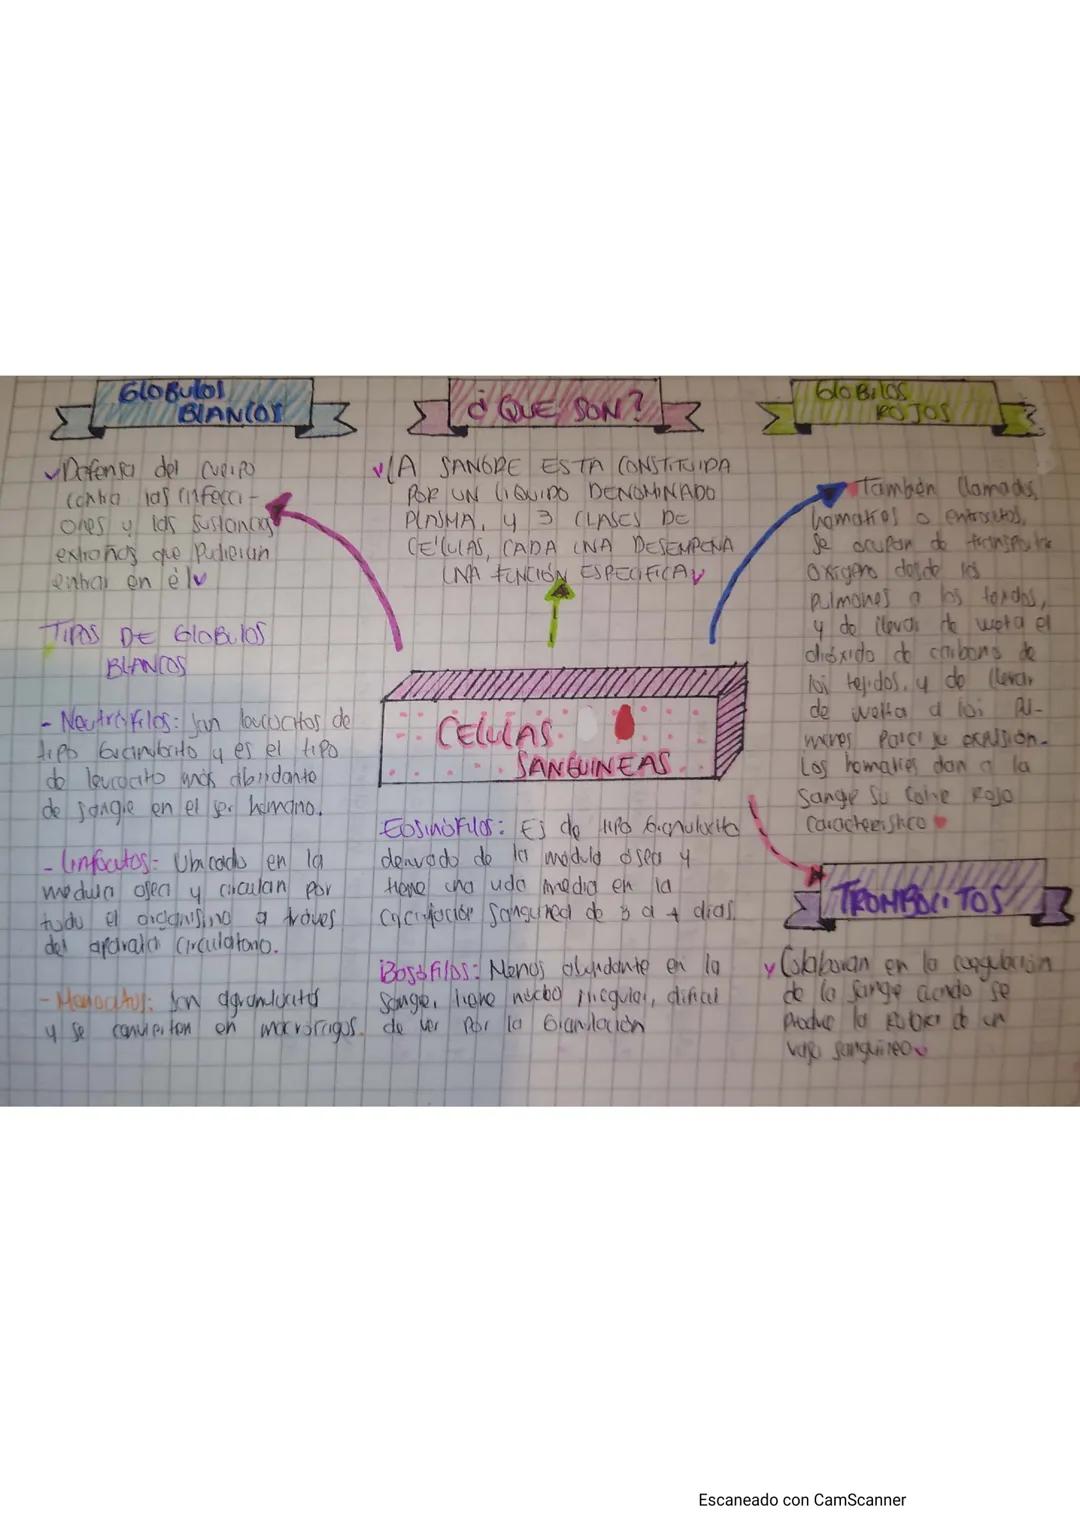 GLOBULOS
BLANCOS
Defensa del cuerpo
contra las infecci-
ones y las sustancias
extrañas que pudieran
entrar en él
TIPOS DE GLOBULOS
BLANCOS
- Neutrófilos: Son leucocitos de
tipo Granulocito y es el tipo
de leucocito más abundante
de sangre en el ser humano.
- Linfocitos: Ubicado en la
medula osea y circulan por
todo el organismo a tráves
del aparato circulatorio.
- Monocitos: Son agranulocitos
y se convierten en macrófagos.
¿ QUE SON?
LA SANGRE ESTA CONSTITUIDA
POR UN LIQUIDO DENOMINADO
PLASMA, y 3 CLASES DE
CÉLULAS, CADA UNA DESEMPEÑA
UNA FUNCIÓN ESPECIFICA
CELULAS
SANGUINEAS
Eosinófilos: Es de tipo Granulocito
derivado de la médula ósea y
tiene una vida media en la
circulación sanguinea de 3 a 4 dias.
Basófilos: Menos abundante en la
sangre, tiene núcleo irregular, dificil
de ver por la Granulación
GLOBULOS
ROJOS
También llamados
hematies o eritrocitos,
se ocupan de transportar
oxigeno desde los
pulmones a los tejidos,
y de llevar de vuelta el
dióxido de carbono de
los tejidos, y de llevar
de vuelta a los Pul-
mones para su expulsión.
Los hematies dan a la
sangre su color Rojo
caracteristico
TROMBOCITOS
Colaboran en la coagulación
de la sangre cuando se
produce la rotura de un
vaso sanguineo
Escaneado con CamScanner